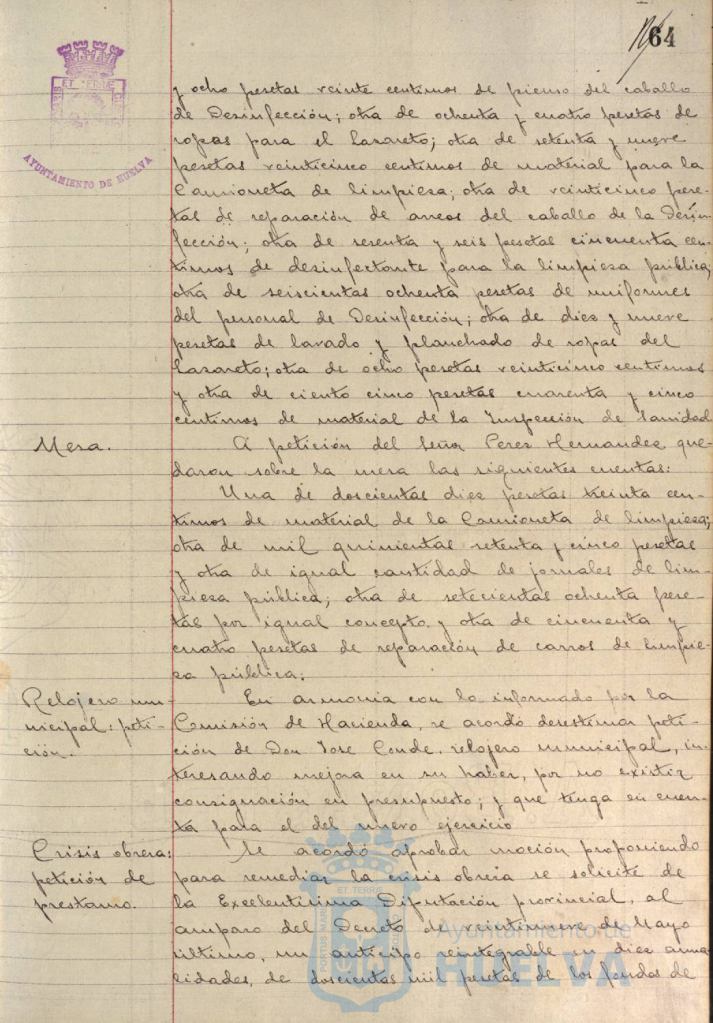 64
ET TERRE
AYUNTAMIENTO DE HUELVA
y ocho pesetas veinte centimos de pienso del caballo
de Desinfección; otra de ochenta y cuatro pesetas de
ropas para el Lazareto; otra de setenta y nueve
pesetas veinticinco centimos de material para la
Camioneta de limpieza; otra de veinticinco pese-
tas de reparación de arreos del caballo de la Desin-
fección; otra de sesenta y seis pesetas cincuenta cen-
timos de desinfectante para la limpieza pública;
otra de seiscientas ochenta pesetas de uniformes
del personal de Desinfección; otra de diez y nueve
pesetas de lavado y planchado de ropas del
Lazareto; otra de ocho pesetas veinticinco centimos
y otra de ciento cinco pesetas cuarenta y cinco
centimos de material de la Inspección de Sanidad
Mesa.
A petición del Señor Perez Hernandez que-
daron sobre la mesa las siguientes cuentas:
Una de doscientas diez pesetas treinta cen-
timos de material de la Camioneta de limpieza;
otra de mil quinientas setenta y cinco pesetas
y otra de igual cantidad de jornales de lim-
pieza pública; otra de setecientas ochenta pese-
tas por igual concepto y otra de cincuenta y
cuatro pesetas de reparación de carros de limpie-
za pública.
Relojero mu-
nicipal: peti-
ción.
En armonia con lo informado por la
Comisión de Hacienda, se acordó desestimar peti-
ción de Don Jose Conde, relojero municipal, in-
teresando mejora en su haber, por no existir
consignación en presupuesto; y que tenga en cuen-
ta para el del nuevo ejercicio
Crisis obrera:
petición de
prestamo.
Se acordó aprobar moción proponiendo
para remediar la crisis obrera se solicite de
la Excelentisima Diputación provincial, al
amparo del Decreto de veintinueve de Mayo
último, un anticipo reintegrable en diez anua-
lidades, de doscientas mil pesetas de los fondos de
ET TERRIS
PORTUS MARIS
Ayuntamiento de
HUELVA